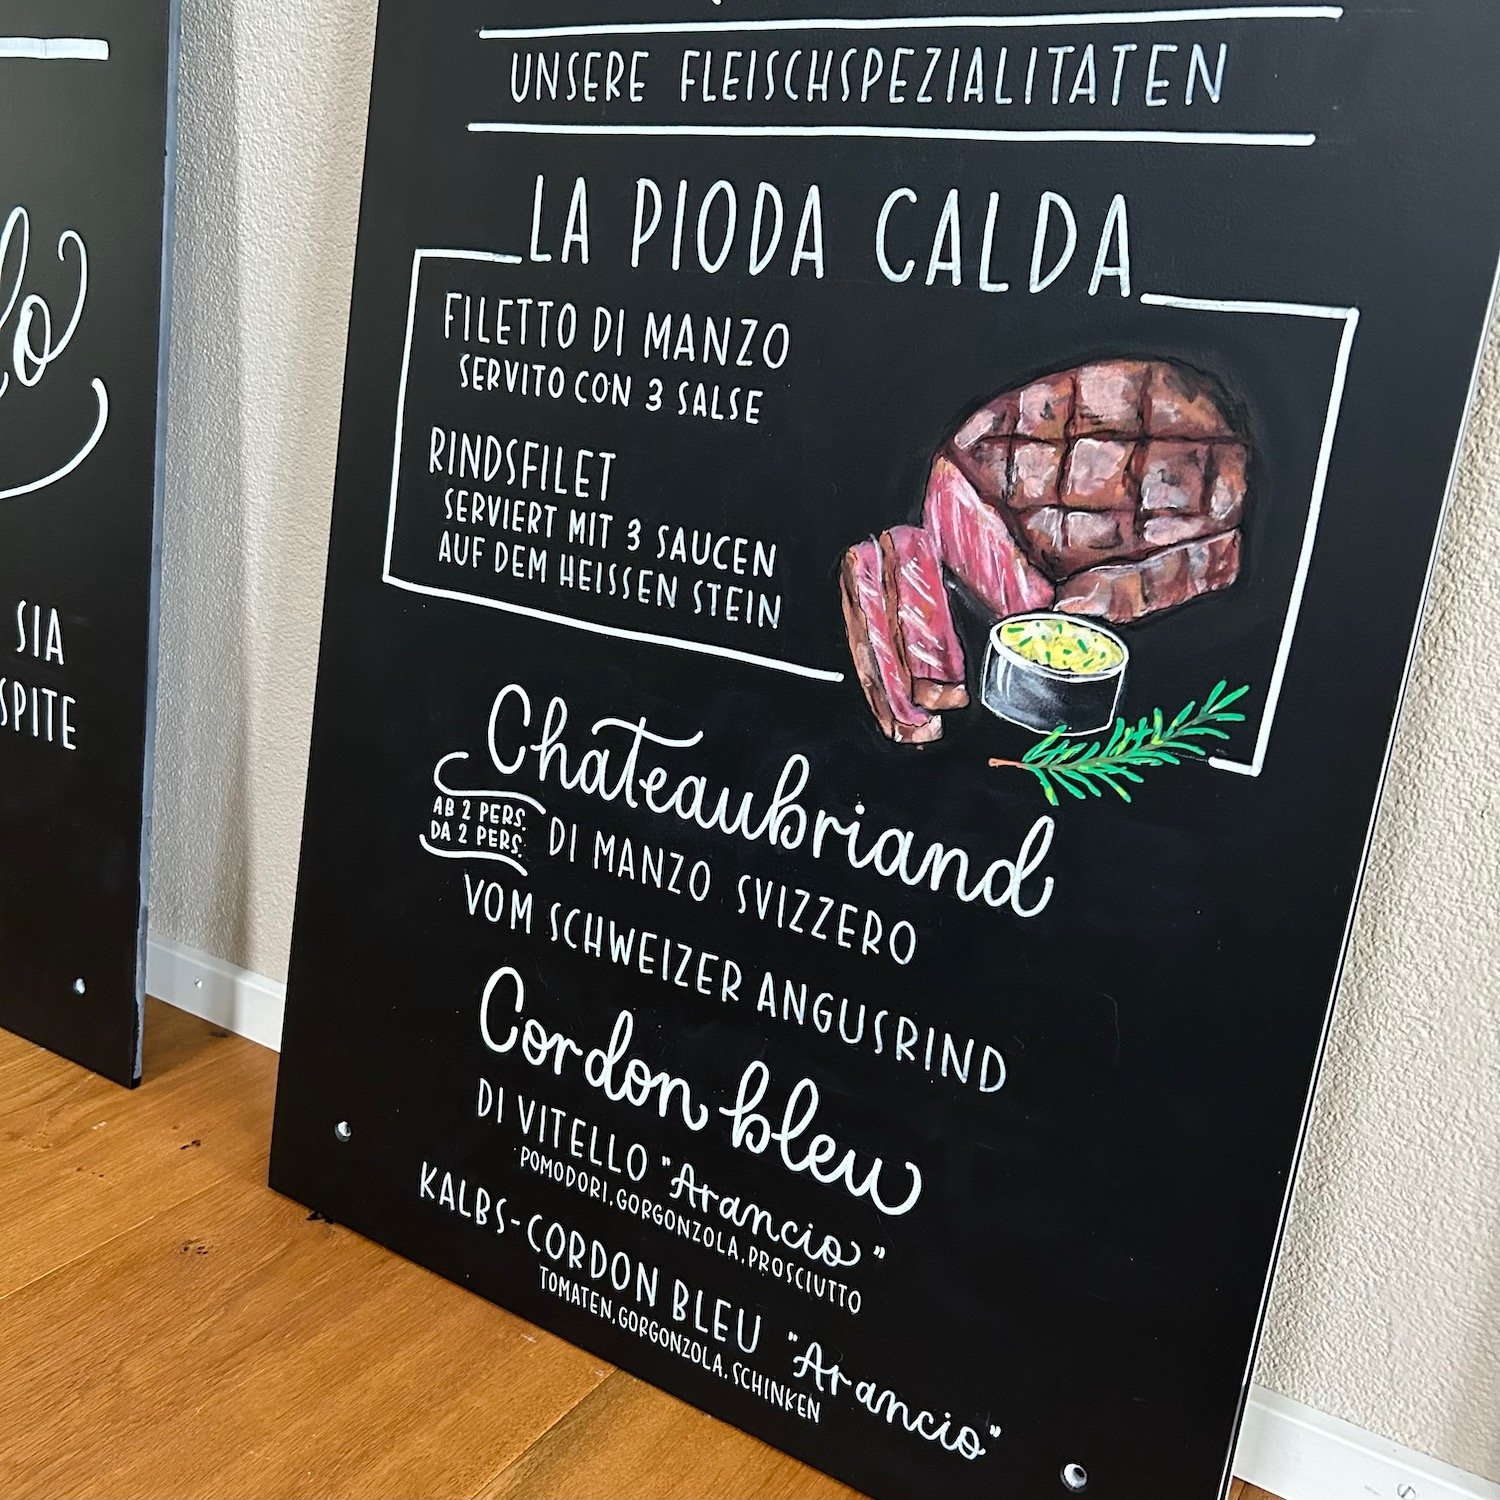 UNSERE FLEISCHSPEZIALITATEN
LA PIODA CALDA
FILETTO DI MANZO
SERVITO CON 3 SALSE
RINDSFILET
SERVIERT MIT 3 SAUCEN
AUF DEM HEISSEN STEIN
Chateaubriand
AB 2 PERS.
DA 2 PERS.
DI MANZO SVIZZERO
VOM SCHWEIZER ANGUSRIND
Cordon bleu
DI VITELLO "Arancio"
POMODORI, GORGONZOLA, PROSCIUTTO
KALBS-CORDON BLEU "Arancio"
TOMATEN, GORGONZOLA, SCHINKEN
lo
SIA
SPITE